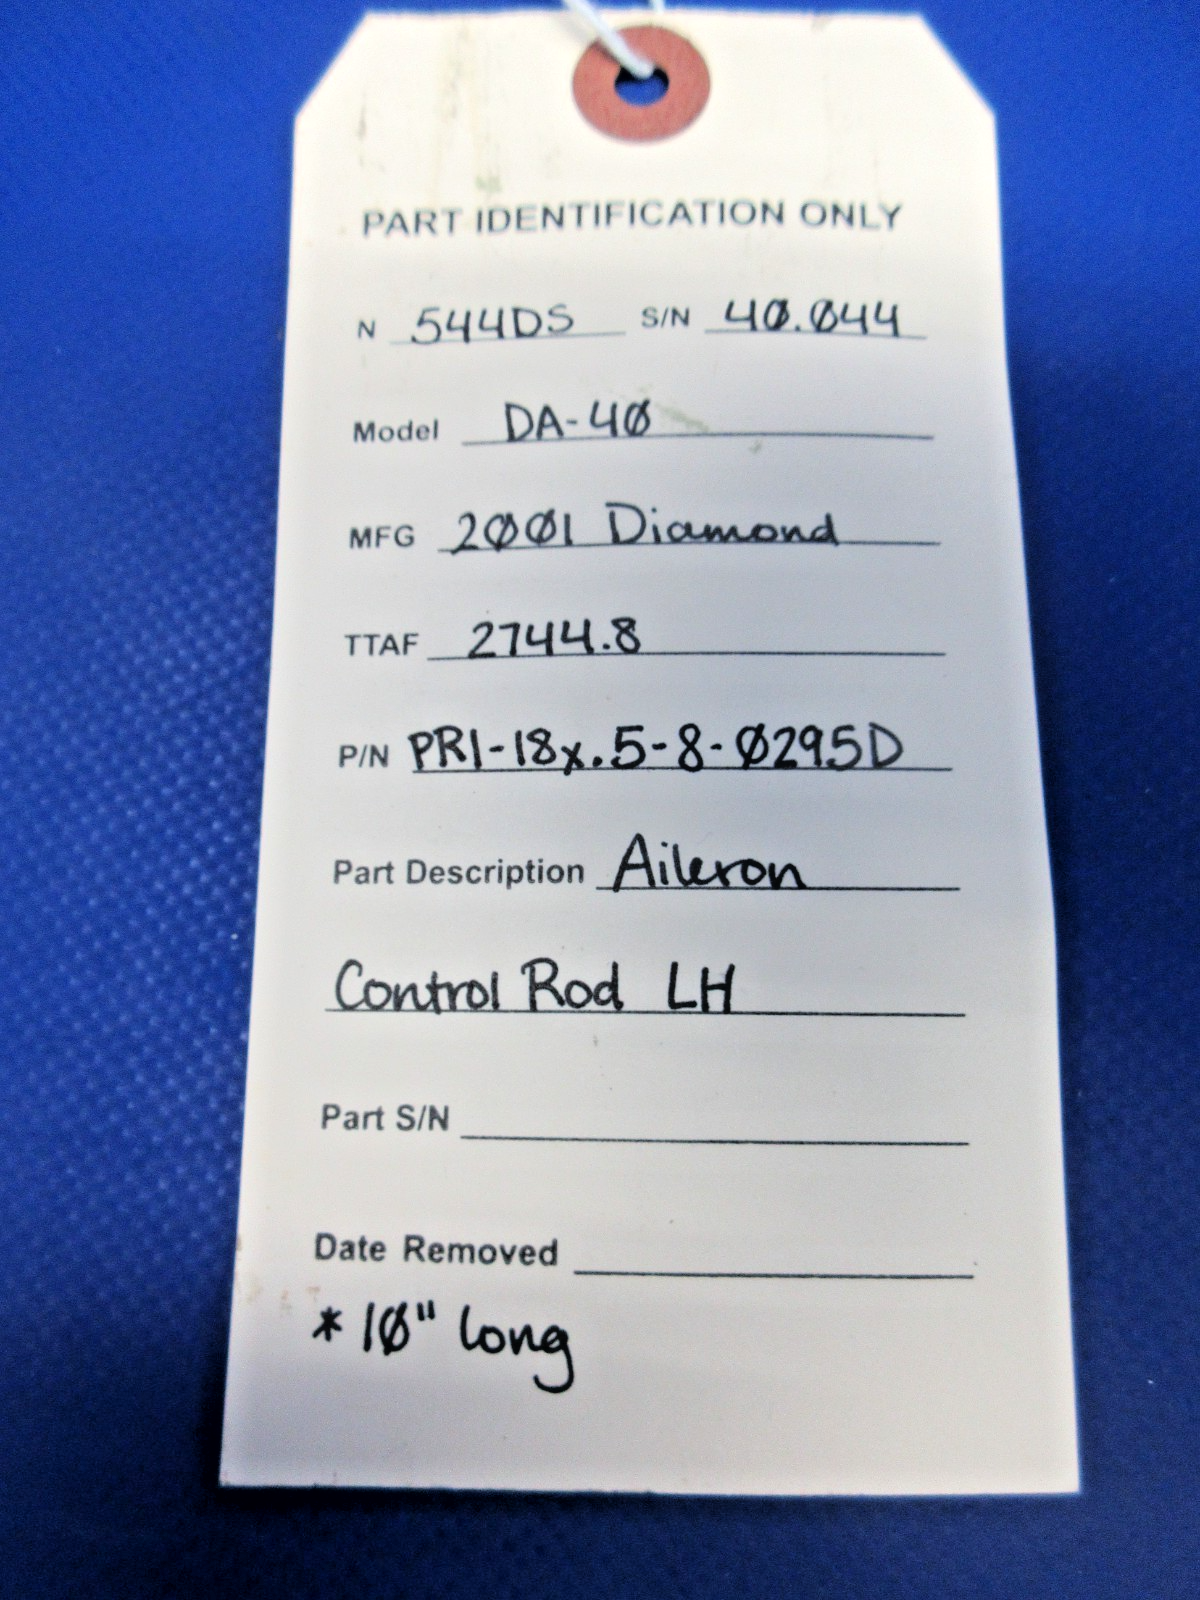 PART IDENTIFICATION ONLY
N 544DS S/N 40.044
Model DA-40
MFG 2001 Diamond
TTAF 2744.8
P/N PR1-18x.5-8-0295D
Part Description Aileron
Control Rod LH
Part S/N
Date Removed
* 10" long